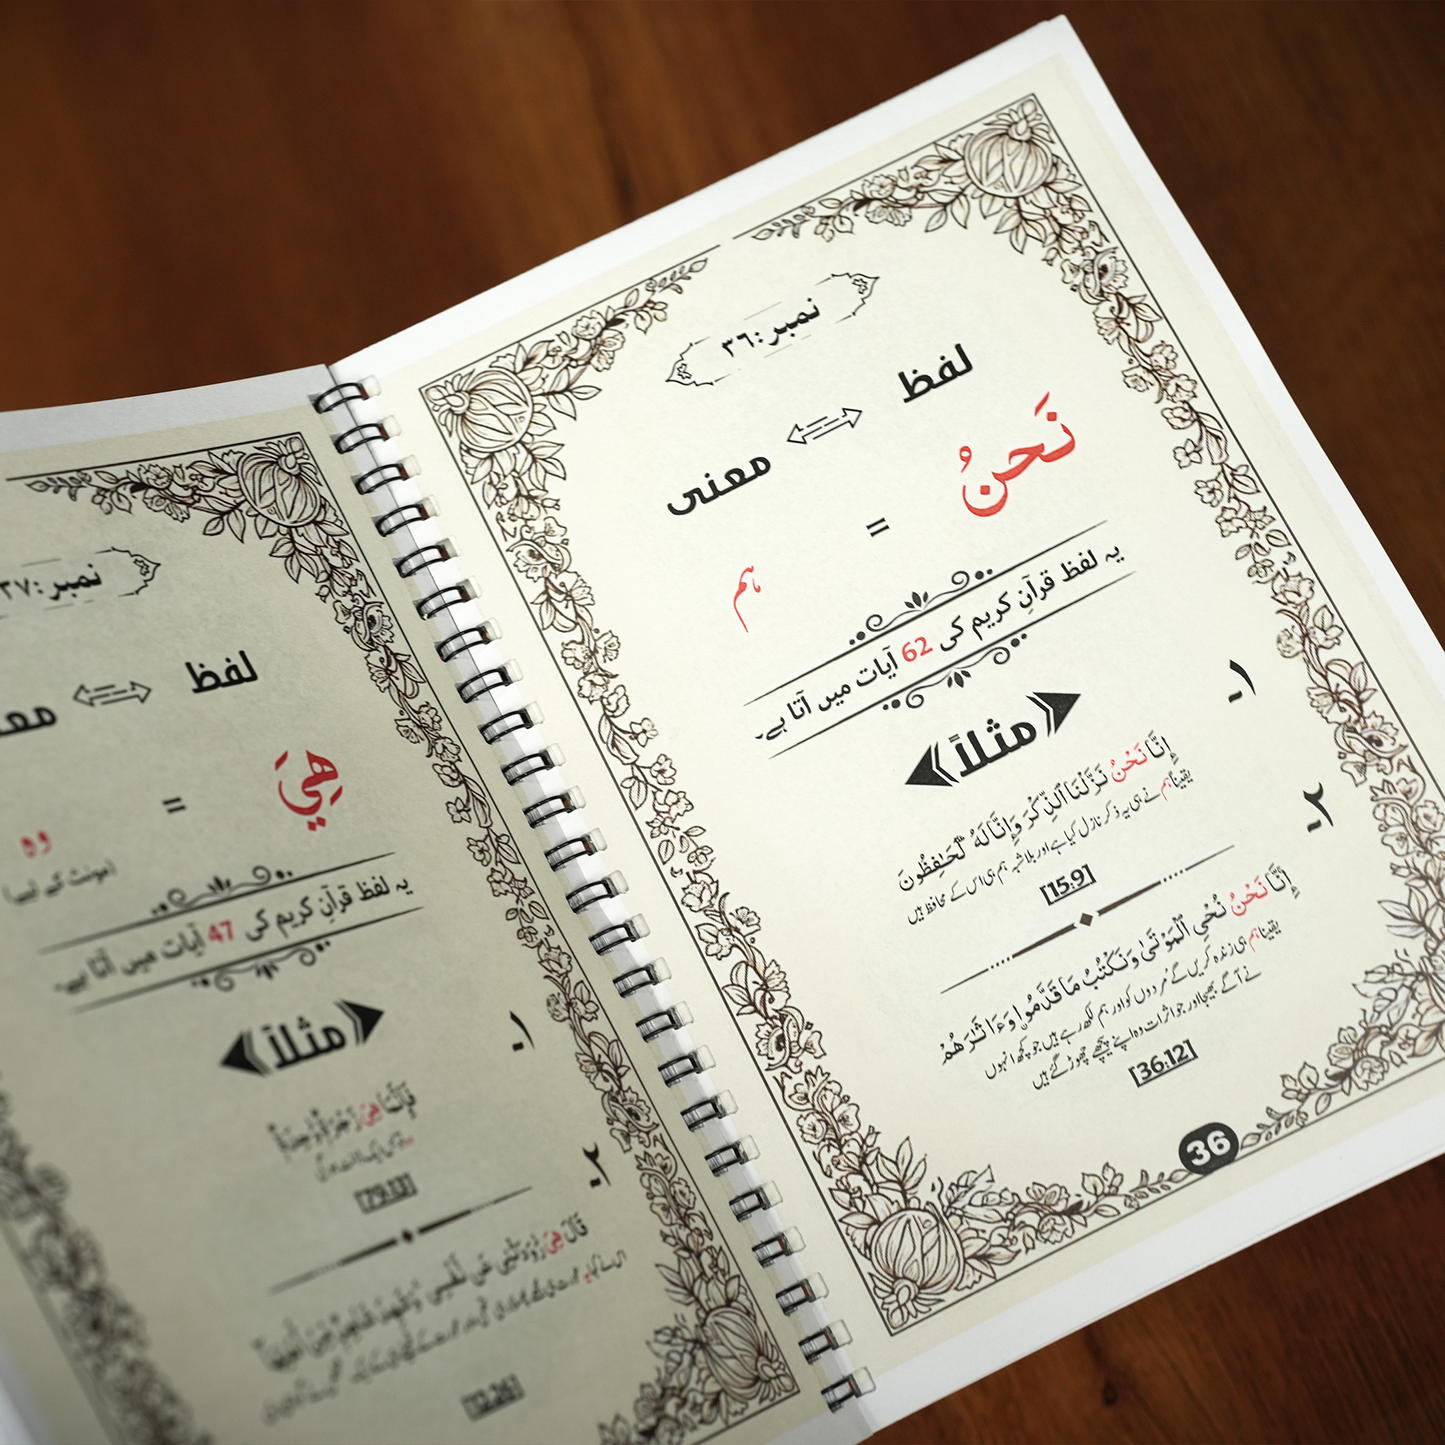 نمبر:۳٦
لفظ ⇐⇒ معنی
نَحنُ = ہم
یہ لفظ قرآنِ کریم کی 62 آیات میں آتا ہے۔
مثلاً
۱-
إِنَّا نَحْنُ نَزَّلْنَا ٱلذِّكْرَ وَإِنَّا لَهُۥ لَحَـٰفِظُونَ
یقیناً ہم نے ہی یہ ذکر نازل کیا ہے اور بلاشبہ ہم ہی اس کے محافظ ہیں
[15:9]
۲-
إِنَّا نَحْنُ نُحْيِ ٱلْمَوْتَىٰ وَنَكْتُبُ مَا قَدَّمُوا۟ وَءَاثَـٰرَهُمْ
یقیناً ہم ہی زندہ کریں گے مُردوں کو اور ہم لکھ رہے ہیں جو کچھ انہوں
نے آگے بھیجا اور جو اثرات وہ اپنے پیچھے چھوڑ گئے ہیں
[36:12]
36
نمبر:۳۷
لفظ ⇐⇒ معنی
هِيَ = وہ
(مونث کے لیے)
یہ لفظ قرآنِ کریم کی 47 آیات میں آتا ہے۔
مثلاً
۱-
فَإِنَّمَا هِىَ زَجْرَةٌ وَٰحِدَةٌ
[79:13]
۲-
قَالَ هِىَ رَٰوَدَتْنِى عَن نَّفْسِى
[12:26]